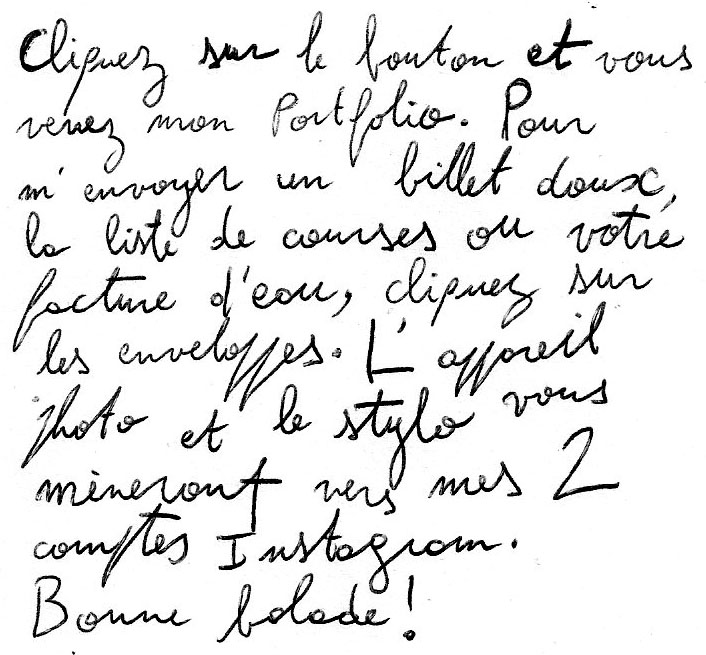 Cliquez sur le bouton et vous
verrez mon Portfolio. Pour
m'envoyer un billet doux,
la liste de courses ou votre
facture d'eau, cliquez sur
les enveloppes. L'appareil
photo et le stylo vous
mèneront vers mes 2
comptes Instagram.
Bonne balade!